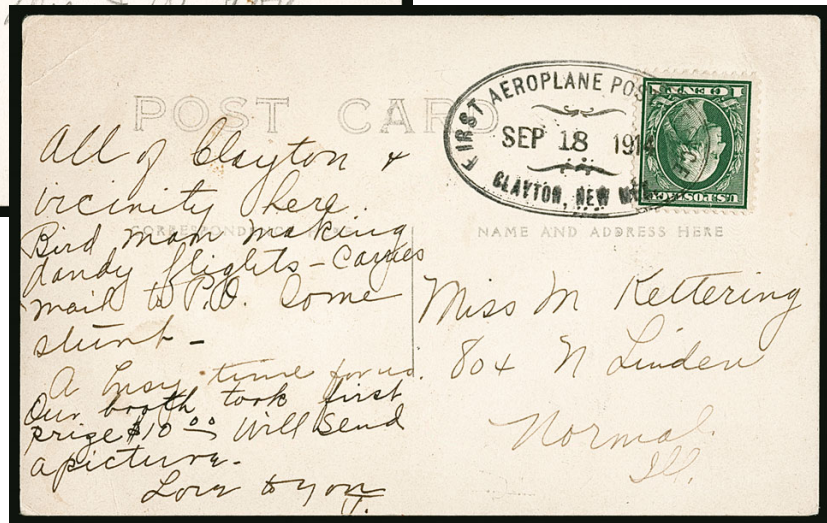 POST CARD
FIRST AEROPLANE POS
SEP 18 1914
CLAYTON, NEW
1 CENT 1
U.S. POSTAGE
CORRESPONDENCE HERE
NAME AND ADDRESS HERE
All of Clayton &
vicinity here.
Bird man making
dandy flights - Carries
mail to P.O. Some
stunt -
A busy time for us.
Our booth took first
prize $10.00 Will send
a picture.
Love to you
Miss M Kettering
804 N Linden
Normal
Ill.